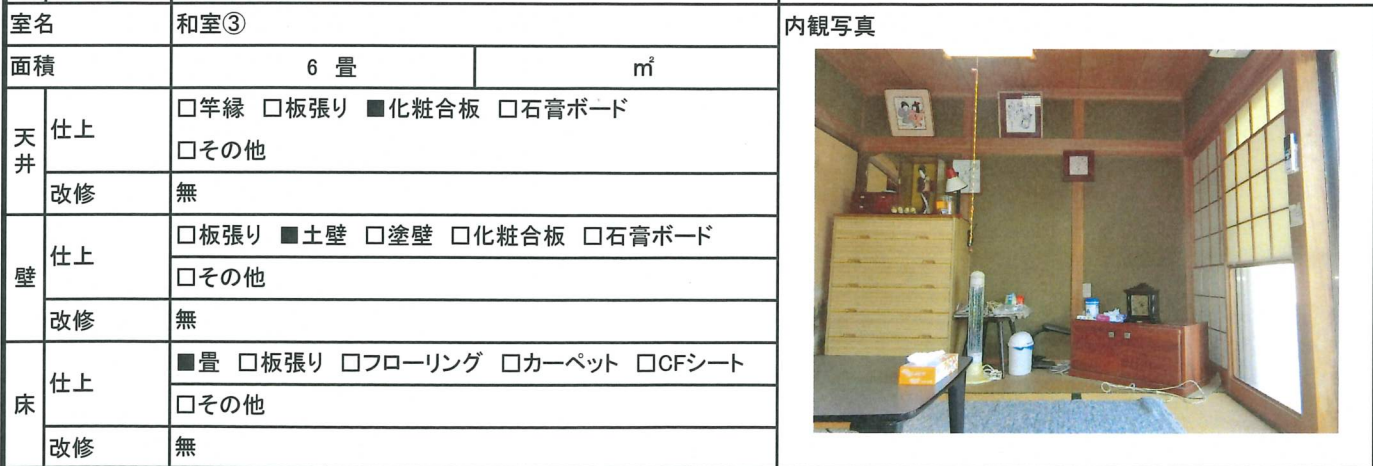 室名 和室③ 内観写真
面積 6 畳 ㎡
天井 仕上 □竿縁 □板張り ■化粧合板 □石膏ボード
□その他
改修 無
壁 仕上 □板張り ■土壁 □塗壁 □化粧合板 □石膏ボード
□その他
改修 無
床 仕上 ■畳 □板張り □フローリング □カーペット □CFシート
□その他
改修 無